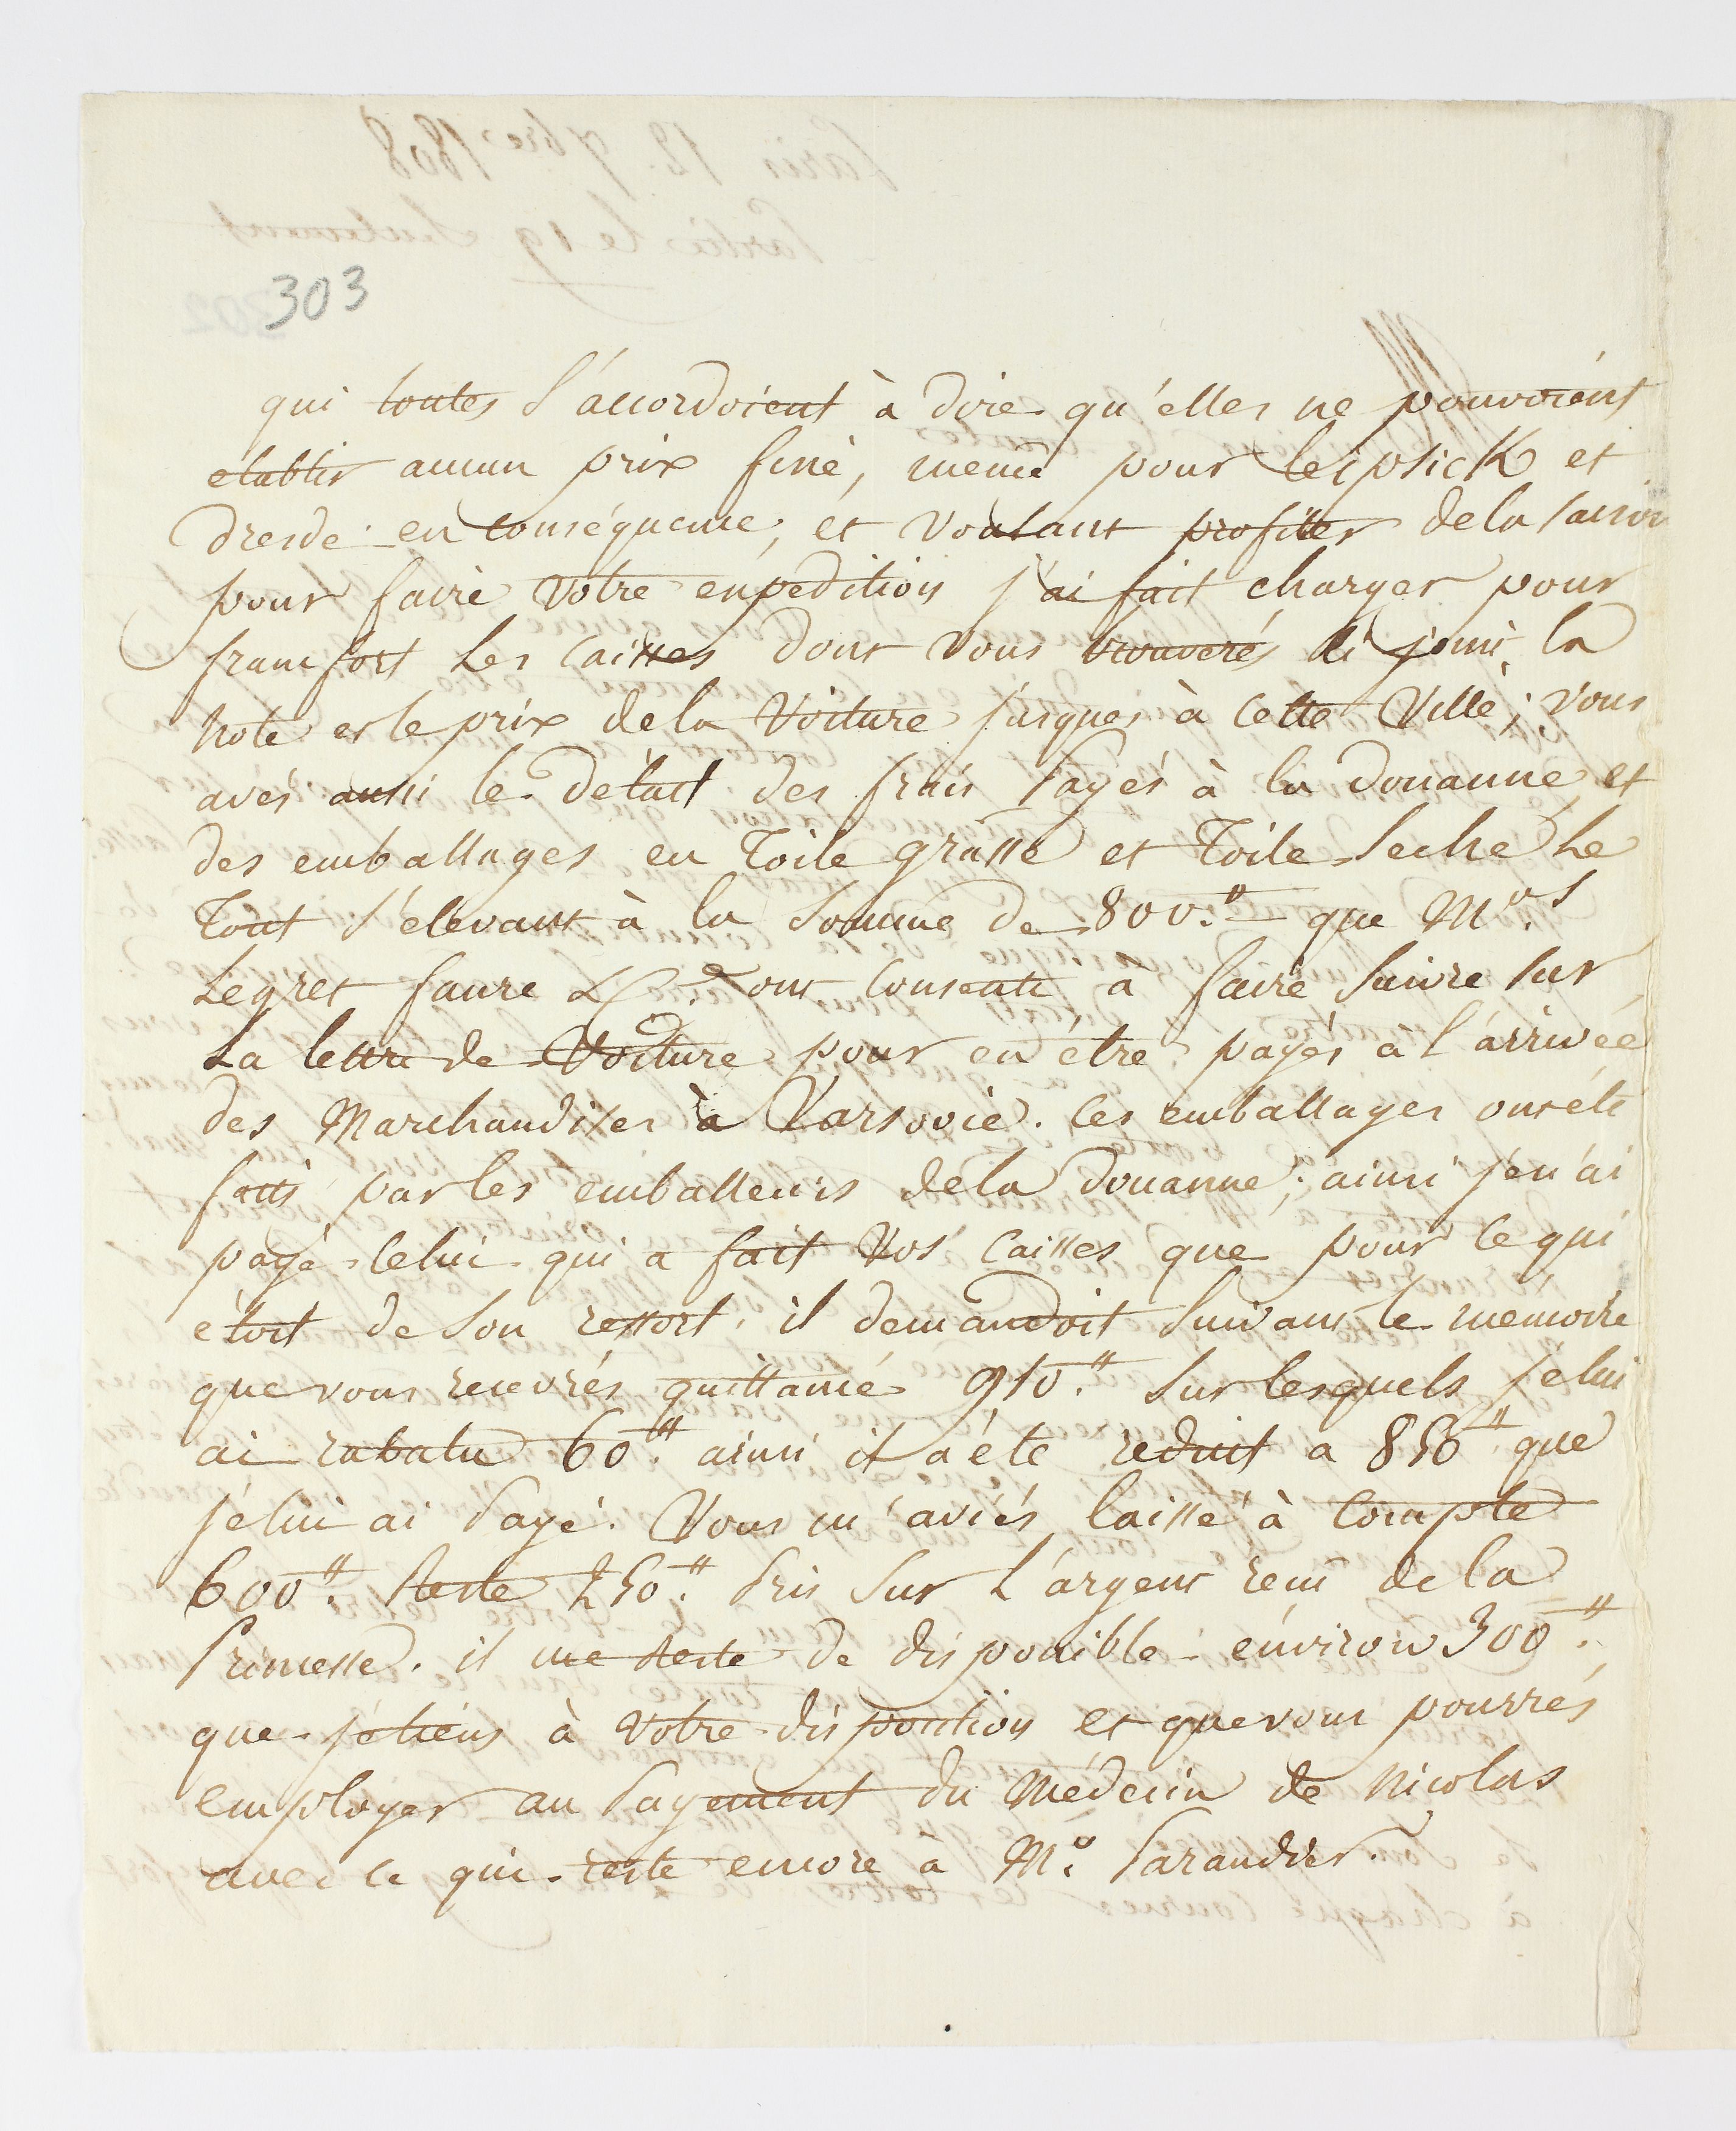 303
qui toutes s'accordoient à dire qu'elles ne pouvoient
etablir aucun prix fixé, meme pour leipsick et
dresde. en conséquence, et voulant profiter de la saison
pour faire votre expedition j'ai fait charger pour
francfort les caisses dont vous trouverés ci joint la
note et le prix de la Voiture jusques à cette Ville; vous
avés aussi le détail des frais payés à la douanne, et
des emballages en Toile grasse et Toile seche Le
Tout s'elevant à la somme de 800.# que Mrs.
Legret faure & Ce. ont consenti à faire suivre sur
La lettre de Voiture pour en être payés à l'arrivée
des Marchandises à Varsovie. les emballages ont été
faits par les emballeurs de la douanne; ainsi j'en ai
payé celui qui a fait vos caisses que pour ce qui
étoit de son ressort, il demandoit suivant le mémoire
que vous recevrés quittancé 910.# sur lesquels je lui
ai rabatu 60.# ainsi il a été reduit a 850# que
je lui ai payé. Vous m'aviés laissé à compte
600.# Reste 250.# pris sur L'argent reçu de la
Princesse. il me reste de disponible environ 300.#
que je tiens à votre disposition et que vous pourrés
employer au payement du Médecin de Nicolas
avec ce qui reste encore à Mr. Parandier.